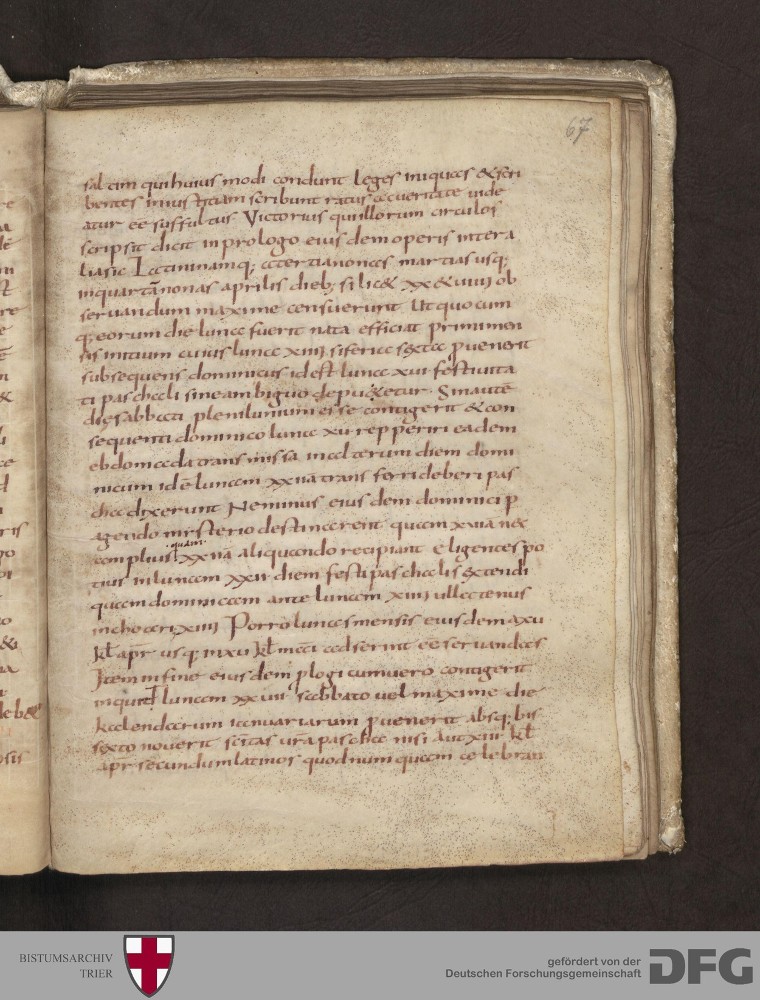 67
saltim qui huius modi condunt leges iniquas & scri
bentes iniustitiam scribunt ratus ac ueritate uide
atur eē suffultus Victorius qui illorum circulos
scripsit dicit in prologo eius dem operis intera
lia sic
in quartā nonas aprilis dieb; sili& xx & uiiii ob
seruandum maxime censuerunt Ut quo cum
q; eorum die lunae fuerit nata efficiat primi men
sis initium cuius luna xiiii si feria sexta puenerit
subsequens dominicus id est luna xui festiuita
ti paschali sine ambiguo deputetur Sin autē
die sabbati plenilunium esse contigerit & con
sequenti dominico luna xu repperiri eadem
ebdomada transmissa in alterum diem domi
nicum id ē lunam xxiia transferri deberi pas
cha dixerunt Ne minus eius dem dominici p
agendo misterio destinarent quam xuiā nec
amplius quam xxiiā aliquando recipiant eligentes po
tius in lunam xxii diem festi paschalis extendi
quam dominicam ante lunam xui ullatenus
inchoari xiiii Porro lunas mensis eius dem a xu
kł apr usq; in xu kł mai adserunt eē seruandas
Item in fine eius dem plogi cum uero contigerit
inquit lunam xxuiii sabbato uel maxime die
kalendarum ianuariarum puenerit absq; bis
sexto nouerit scītas ur̄a pascha nisi aut xiiii kł
apr secundum latinos quod numquam celebran
BISTUMSARCHIV
TRIER
gefördert von der
Deutschen Forschungsgemeinschaft
DFG